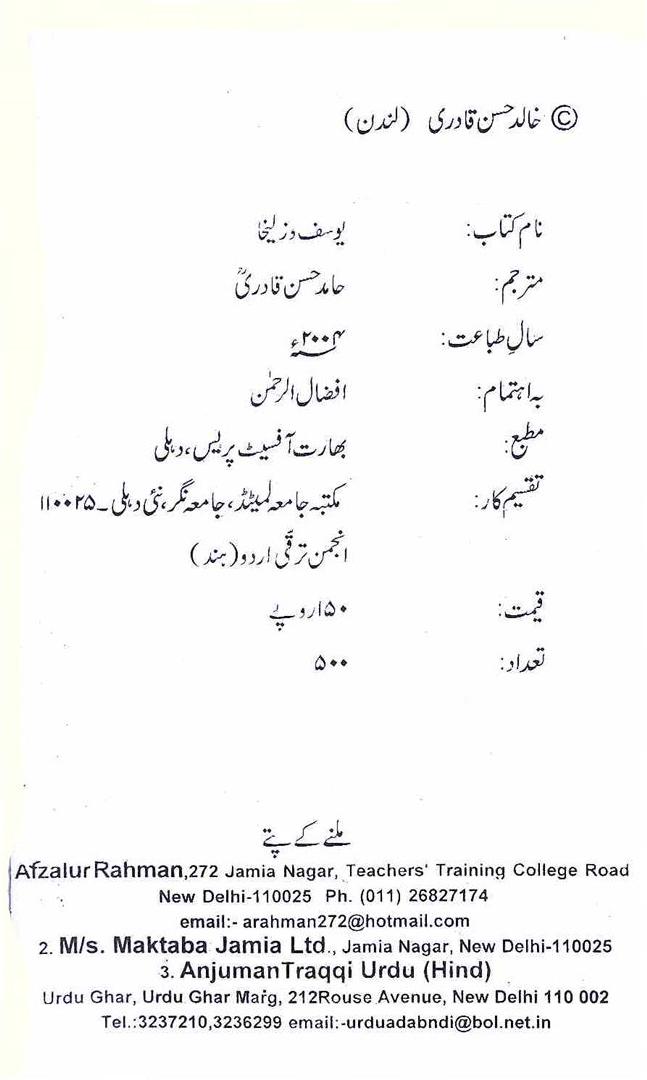 © خالد حسن قادری (لندن)
نام کتاب: یوسف و زلیخا
مترجم: حامد حسن قادریؒ
سالِ طباعت: ۲۰۰۴ء
بہ اہتمام: افضال الرحمٰن
مطبع: بھارت آفسیٹ پریس، دہلی
تقسیم کار: مکتبہ جامعہ لمیٹڈ، جامعہ نگر، نئی دہلی۔ ۱۱۰۰۲۵
انجمن ترقّی اردو (ہند)
قیمت: ۱۵۰ روپے
تعداد: ۵۰۰
ملنے کے پتے
Afzalur Rahman,272 Jamia Nagar, Teachers' Training College Road
New Delhi-110025 Ph. (011) 26827174
email:- arahman272@hotmail.com
2. M/s. Maktaba Jamia Ltd., Jamia Nagar, New Delhi-110025
3. AnjumanTraqqi Urdu (Hind)
Urdu Ghar, Urdu Ghar Marg, 212Rouse Avenue, New Delhi 110 002
Tel.:3237210,3236299 email:-urduadabndi@bol.net.in